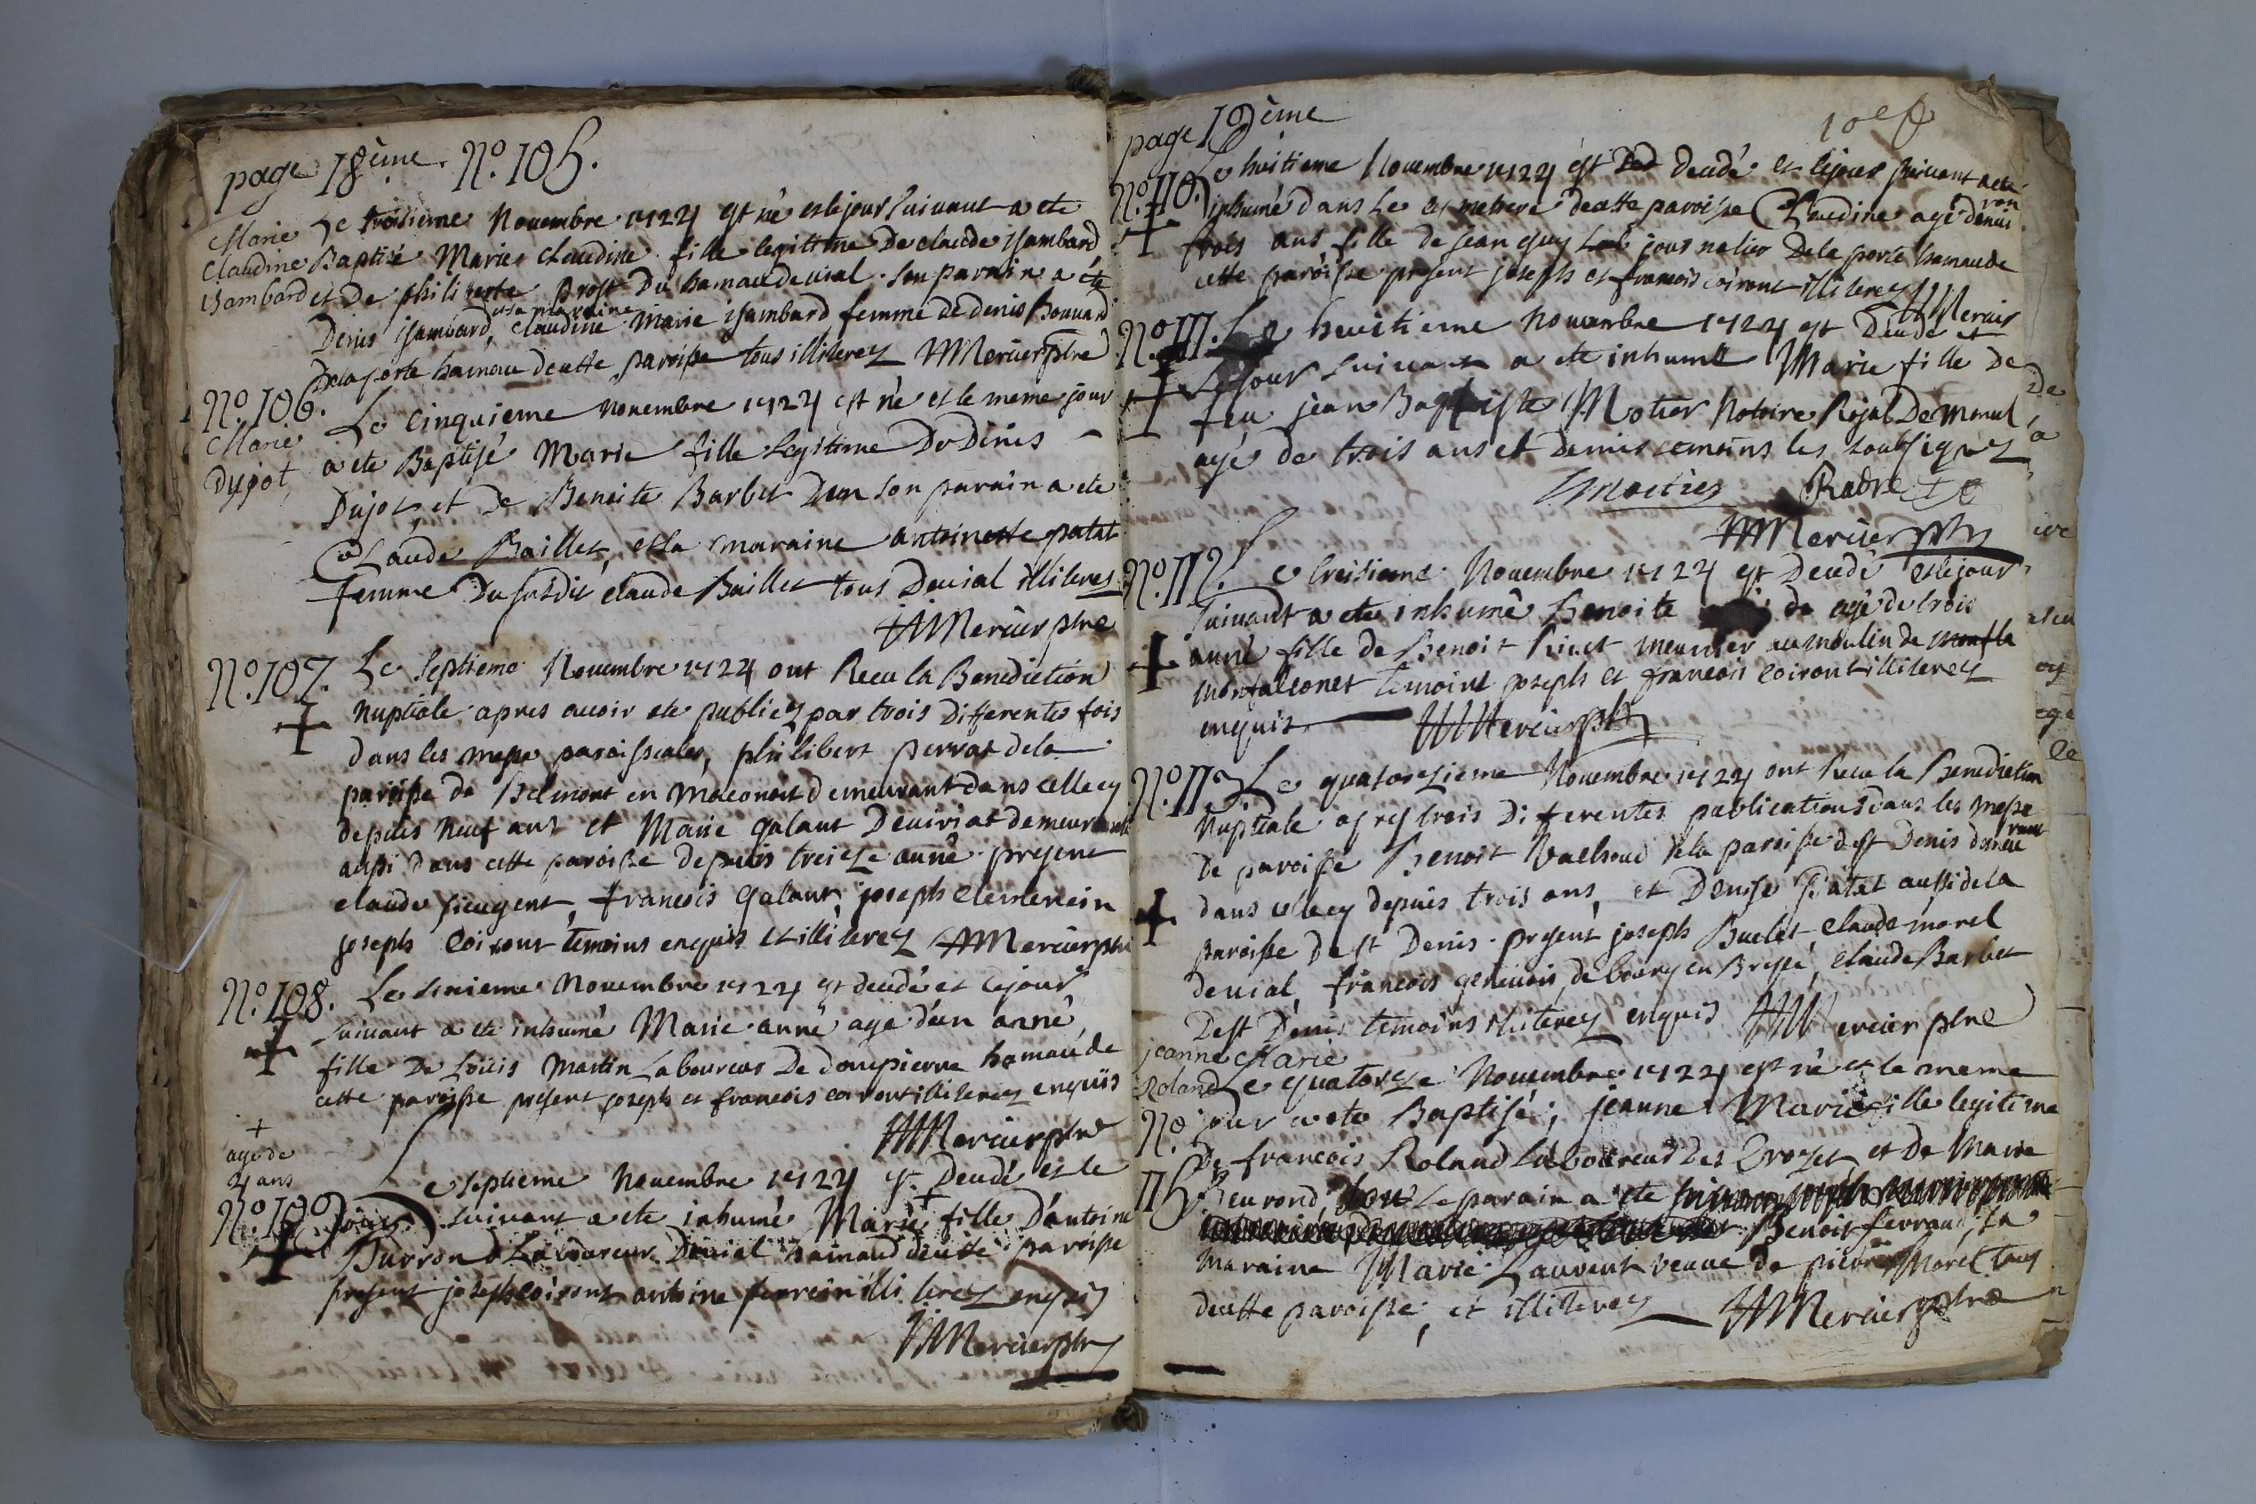 page 18ème. No. 105.
Marie Claudine Isambard
Le troisieme Novembre 1724 est né et le jour suivant a ete
Baptisé Marie Claudine fille legittime De claude isambard
et De philiberte prost Du hamau de vial. son parain a été
Denis isambard, et sa maraine claudine Marie isambard femme de denis Bouvard
Dela porte hamau de cette paroisse tous illiterez Mercier ptre
No. 106.
Marie Dujot
Le cinquieme novembre 1724 est né et le meme jour
a ete Baptisé Marie fille Legitime De Denis
Dujot et de Benoite Barbet son parain a ete
Claude Baillet, et sa maraine antoinette patat
femme Du susdit claude Baillet tous Devial illiteres
Mercier ptre
No. 107.
Le septieme Novembre 1724 ont Receu la Benediction
nuptiale apres avoir ete publiez par trois differentes fois
dans les messe paroissiales, philibert perrat dela
paroisse de Belmont en maconois demeurant dans cellecy
depuis neuf ans et Marie galant demeurante
aussi dans cette paroisse depuis treize anné present
claude, francois galant joseph
joseph coiront temoins enquis et illiterez Mercier ptre
No. 108.
Le sixieme Novembre 1724 est decedé et le jour
suivant a ete inhumé Marie anné age d'un anné,
fille De Loüis Martin Laboureur De dompierre hamau de
cette paroisse present joseph et francois coiront illiterez enquis
Mercier ptre
agé de
4 ans
No. 109
Le septieme Novembre 1724 est Decedé et le
jour suivant a ete inhumé Marie fille D'antoine
Laboureur Devial hamau de cette paroisse
present joseph coiront antoine illiterez enquis
Mercier ptre
page 19ème
No. 110.
Le huitieme Novembre 1724 est decedé et le jour suivant a ete
inhumé dans le cymetiere de cette paroisse Claudine agé denviron
trois ans fille de jean guy journalier Dela porte hamau de
cette paroisse present joseph et francois coiront illiterez Mercier
No. 111.
Le huitieme novembre 1724 est Decedé et
Le jour suivant a ete inhumé Marie fille De
feu jean Baptiste Motier Notaire Royal
agé de trois ans et Demis temoins les soussignez
Mercier ptre
No. 112.
Le treisieme Novembre 1724 est Decedé et le jour
suivant a ete inhumé Benoite de agé de trois
anné fille de Benoit meunier au moulin de
montfalconet temoins joseph et francois coiront illiterez
enquis Mercier ptre
No. 113.
Le quatorzieme Novembre 1724 ont Receu la Benediction
Nuptiale apres trois Differentes publications dans les messe
de paroisse Benoit dela paroisse de st Denis demeurant
dans cellecy depuis trois ans, et Denise Patat aussi dela
paroisse De st Denis. present joseph Buclet claude morel
devial, francois genevois de bourg en Bresse, claude Barbet
De st Denis temoins illiterez enquis Mercier ptre
jeanne Marie
Roland
No 115
Le quatorze Novembre 1724 est né et le meme
jour a ete Baptisé, jeanne Marie fille legitime
De francois Roland Laboureur et De Marie
Beurond, Le parain a ete
Benoit ferrand, sa
maraine Marie Laurent veuve de pierre Morel tous
de cette paroisse, et illiterez Mercier ptre